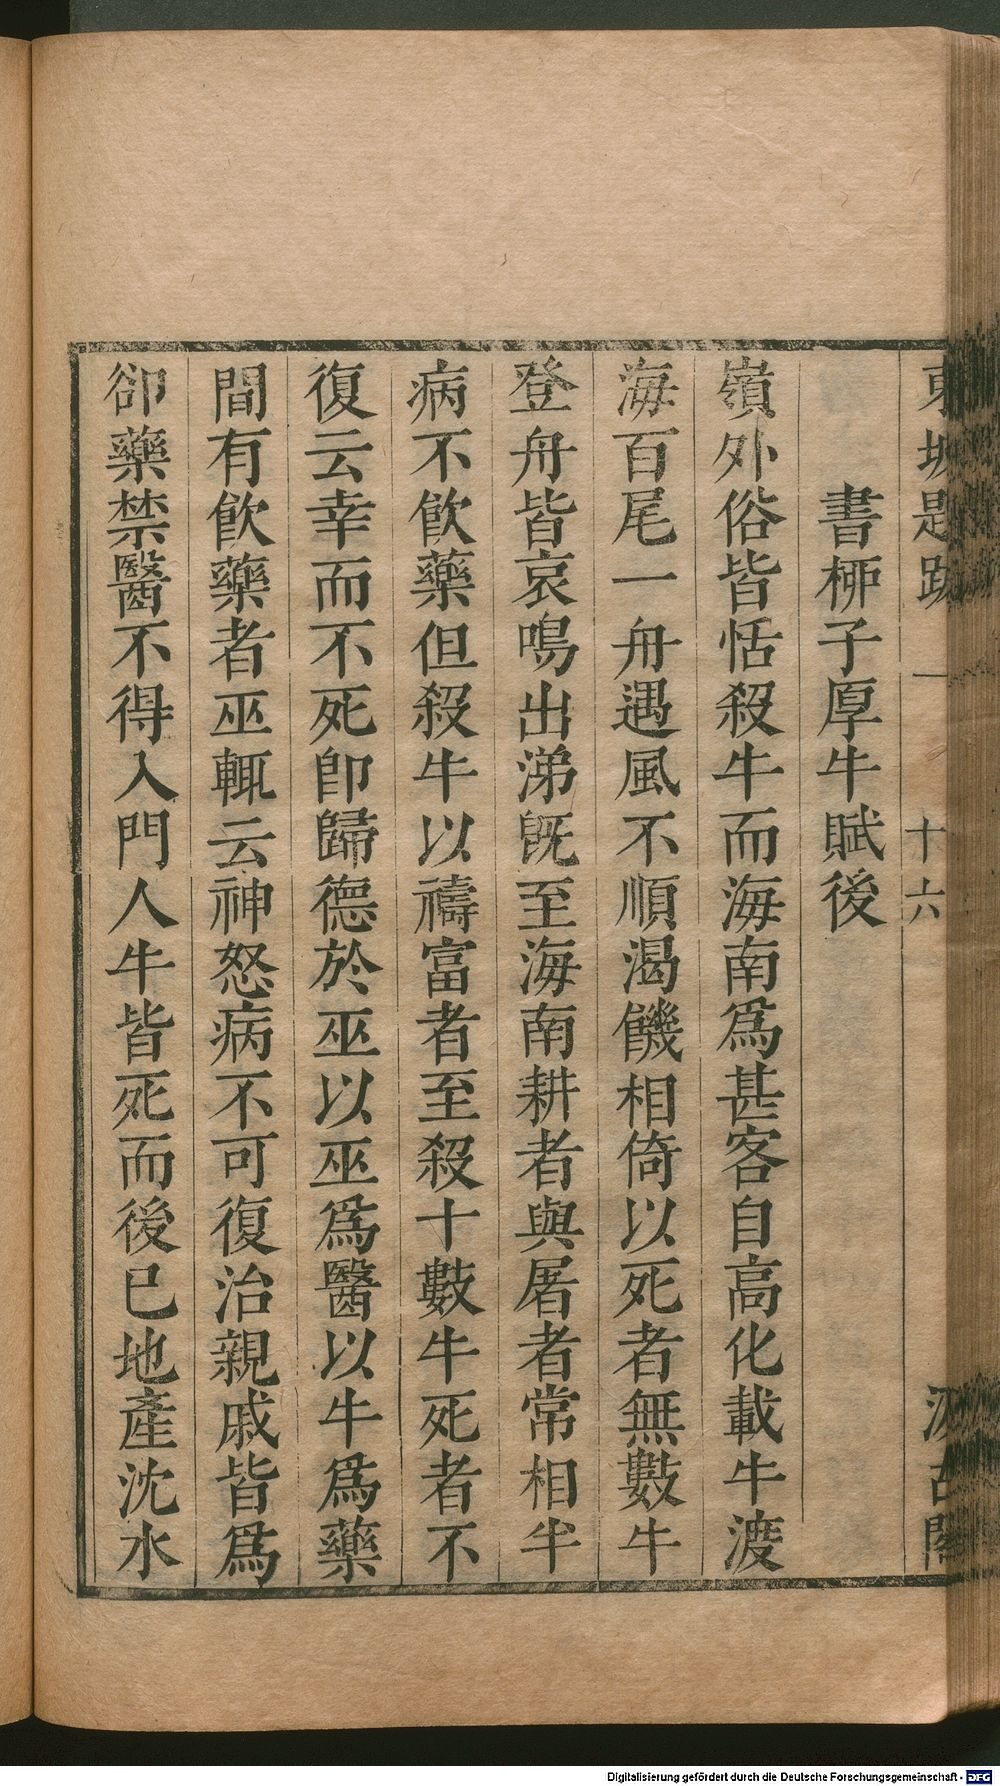 東坡題跋 一 十六 汲古閣
書桺子厚牛賦後
嶺外俗皆恬殺牛而海南爲甚客自高化載牛渡
海百尾一舟遇風不順渴饑相倚以死者無數牛
登舟皆哀鳴出涕旣至海南耕者與屠者常相半
病不飮藥但殺牛以禱富者至殺十數牛死者不
復云幸而不死卽歸德於巫以巫爲醫以牛爲藥
間有飮藥者巫輒云神怒病不可復治親戚皆爲
卻藥禁醫不得入門人牛皆死而後已地產沈水
Digitalisierung gefördert durch die Deutsche Forschungsgemeinschaft - DFG